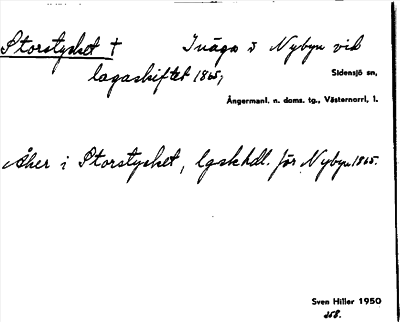 Storstycket † I väga i Nybyn vid
lagaskiftet 1865,
Sidensjö sn,
Ångermanl. n. doms. tg., Västernorrl. l.
Åker i Storstycket, lgskhdl. för Nybyn 1865.
Sven Hiller 1950
258.